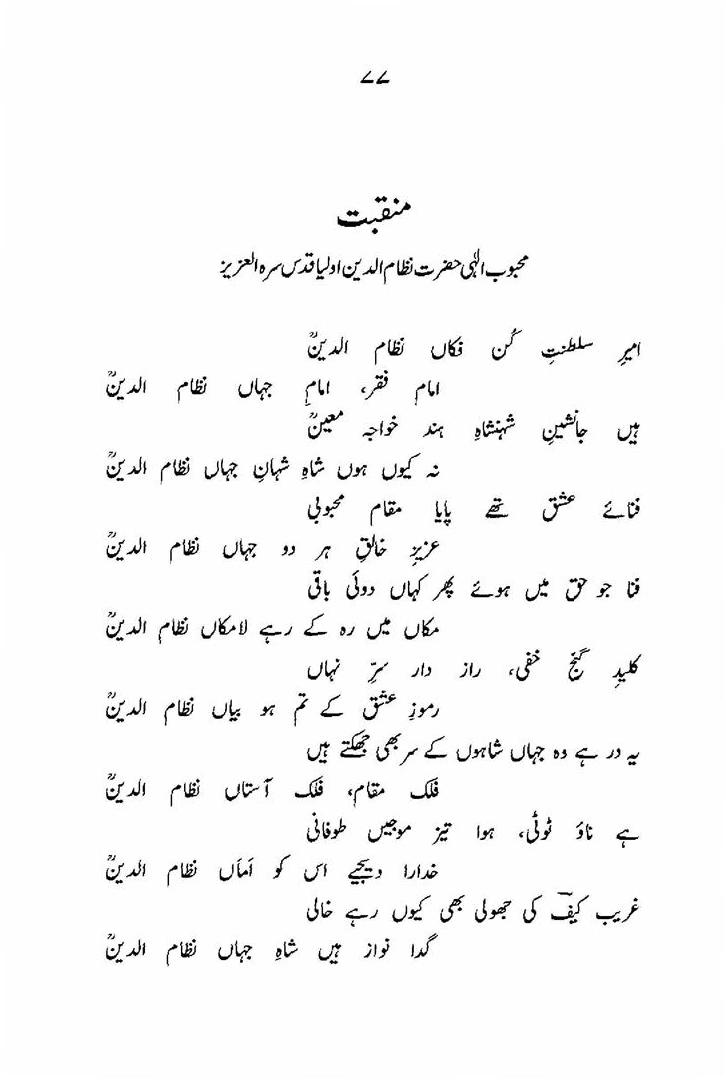 ۷۷
منقبت
محبوب الٰہی حضرت نظام الدین اولیا قدس سرہ العزیز
امیرِ سلطنتِ کُن فکاں نظام الدینؒ
امامِ فقر، امامِ جہاں نظام الدینؒ
ہیں جانشینِ شہنشاہِ ہند خواجہ معینؒ
نہ کیوں ہوں شاہِ شہانِ جہاں نظام الدینؒ
فنائے عشق تھے پایا مقام محبوبی
عزیزِ خالقِ ہر دو جہاں نظام الدینؒ
فنا جو حق میں ہوئے پھر کہاں دوئی باقی
مکاں میں رہ کے رہے لامکاں نظام الدینؒ
کلیدِ گنجِ خفی، راز دار سرِّ نہاں
رموزِ عشق کے تم ہو بیاں نظام الدینؒ
یہ در ہے وہ جہاں شاہوں کے سر بھی جھکتے ہیں
فلک مقام، فلک آستاں نظام الدینؒ
ہے ناؤ ٹوٹی، ہوا تیز موجیں طوفانی
خدارا دیجیے اس کو اَماں نظام الدینؒ
غریب کیفؔ کی جھولی بھی کیوں رہے خالی
گدا نواز ہیں شاہِ جہاں نظام الدینؒ